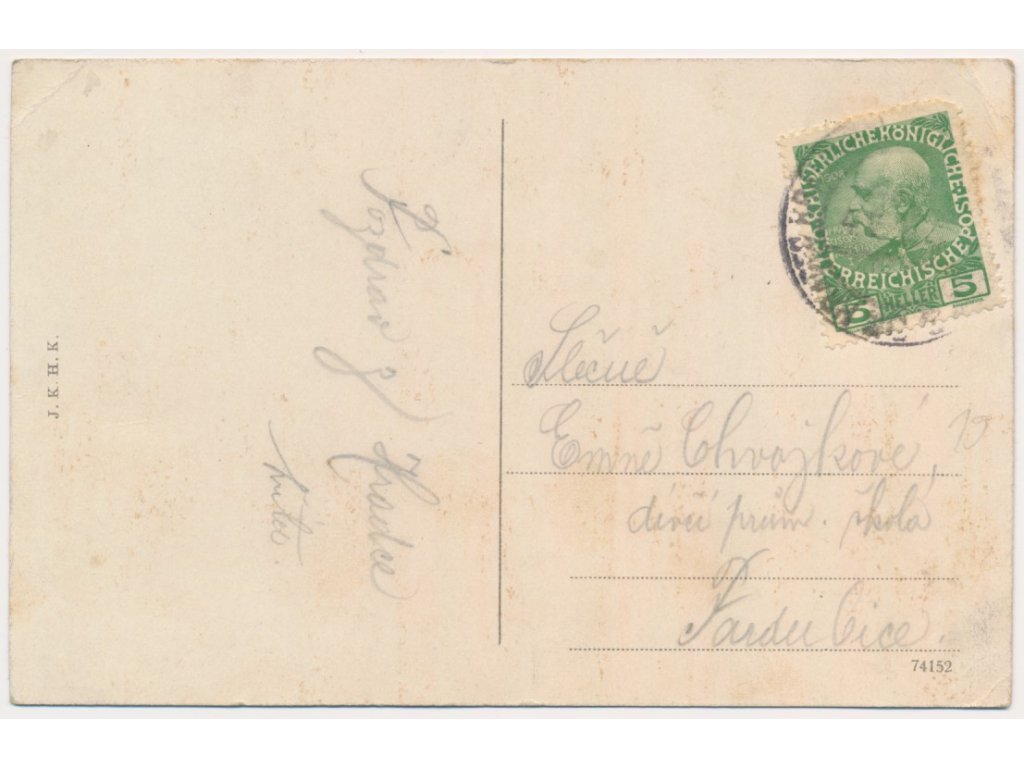 J. K. H. K.
Pozdrav z
KAISERLICHE KÖNIGLICHE ÖSTERREICHISCHE POST
5 HELLER 5
Slečně
Emně Chvojkové,
dívčí prům. škola
Pardubice.
74152